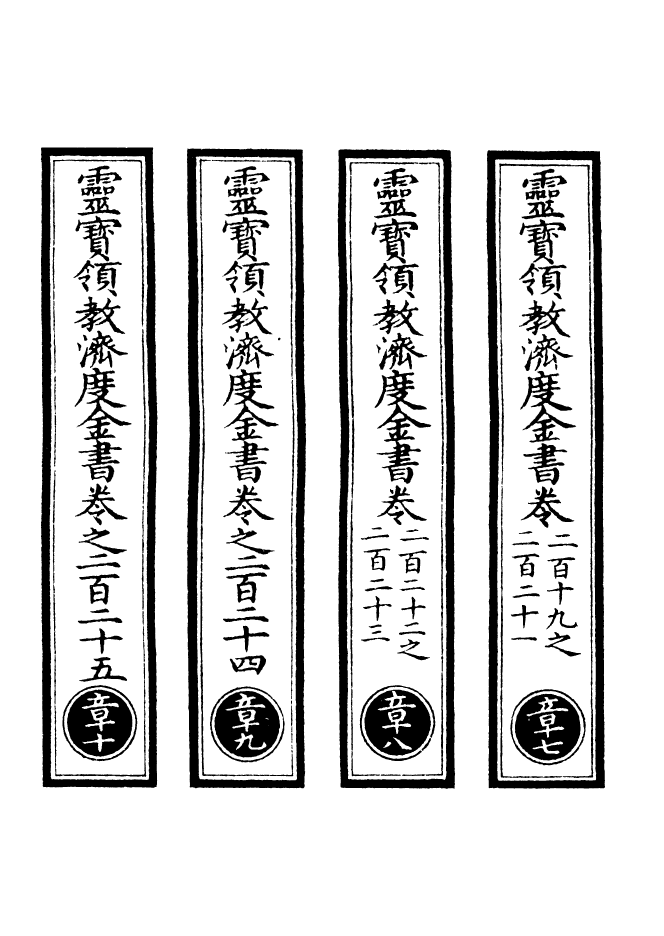 靈寶領教濟度金書卷
二百十九之
二百二十一
章七
靈寶領教濟度金書卷
二百二十二之
二百二十三
章八
靈寶領教濟度金書卷之二百二十四
章九
靈寶領教濟度金書卷之二百二十五
章十